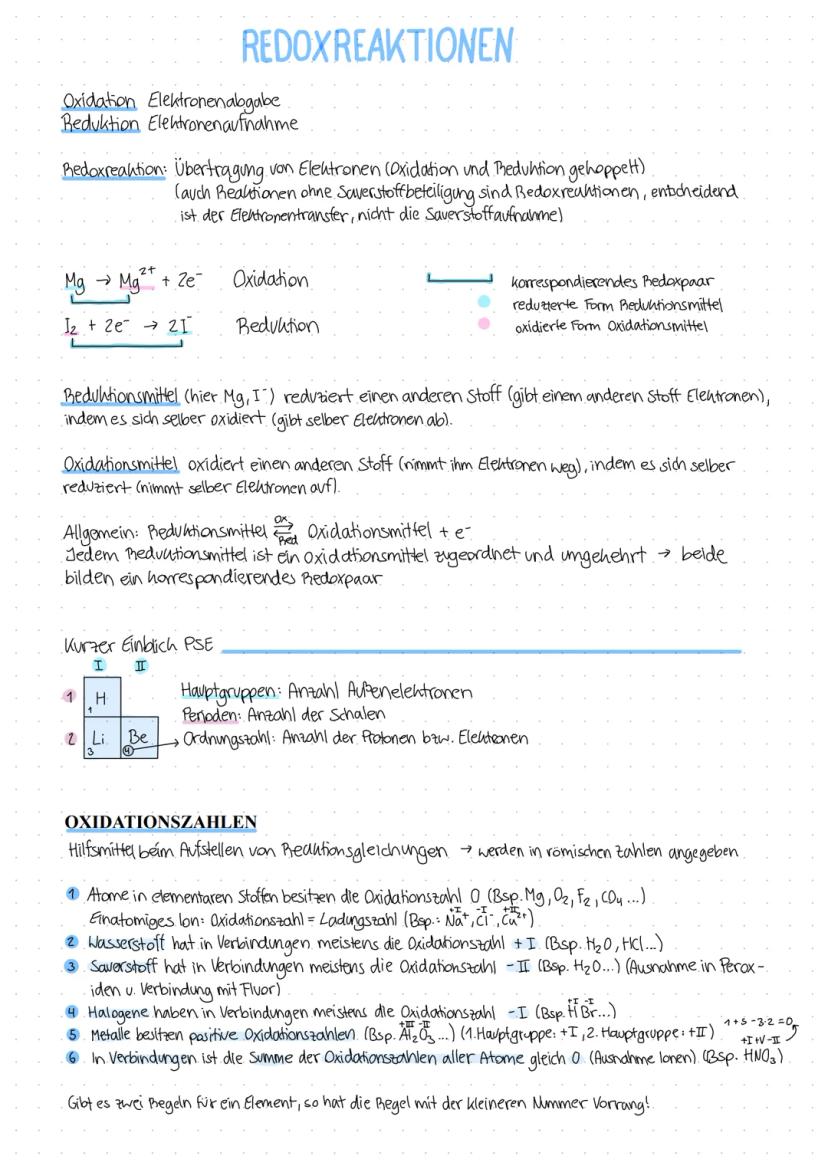 REDOXREAKTIONEN
Oxidation Elektronenabgabe
Reduktion Elektronenaufnahme
Redoxreaktion: Übertragung von Elektronen (Oxidation und Reduktion gekoppelt)
(auch Reaktionen ohne Sauerstoffbeteiligung sind Redoxreaktionen, entscheidend
ist der Elektronentransfer, nicht die Sauerstoffaufnahme)
Mg → Mg²⁺ + 2e⁻ Oxidation
I₂ + 2e⁻ → 2I⁻ Reduktion
korrespondierendes Redoxpaar
reduzierte Form Reduktionsmittel
oxidierte Form Oxidationsmittel
Reduktionsmittel (hier Mg, I⁻) reduziert einen anderen Stoff (gibt einem anderen Stoff Elektronen),
indem es sich selber oxidiert (gibt selber Elektronen ab).
Oxidationsmittel oxidiert einen anderen Stoff (nimmt ihm Elektronen weg), indem es sich selber
reduziert (nimmt selber Elektronen auf).
Ox
Allgemein: Reduktionsmittel ⇄ Oxidationsmittel + e⁻
Red
Jedem Reduktionsmittel ist ein Oxidationsmittel zugeordnet und umgekehrt → beide
bilden ein korrespondierendes Redoxpaar
Kurzer Einblick PSE
I II
1 H 1
2 Li 3 Be 4
Hauptgruppen: Anzahl Außenelektronen
Perioden: Anzahl der Schalen
Ordnungszahl: Anzahl der Protonen bzw. Elektronen
OXIDATIONSZAHLEN
Hilfsmittel beim Aufstellen von Reaktionsgleichungen → werden in römischen Zahlen angegeben
1 Atome in elementaren Stoffen besitzen die Oxidationszahl 0 (Bsp. Mg, O₂, F₂, CO₄ ...)
+I -I +II
Einatomiges Ion: Oxidationszahl = Ladungszahl (Bsp.: Na⁺, Cl⁻, Cu²⁺)
2 Wasserstoff hat in Verbindungen meistens die Oxidationszahl +I (Bsp. H₂O, HCl...)
3 Sauerstoff hat in Verbindungen meistens die Oxidationszahl -II (Bsp. H₂O...) (Ausnahme in Perox-
iden u. Verbindung mit Fluor)
+I -I
4 Halogene haben in Verbindungen meistens die Oxidationszahl -I (Bsp. HBr...)
+III -II
5 Metalle besitzen positive Oxidationszahlen (Bsp. Al₂O₃ ...) (1. Hauptgruppe: +I, 2. Hauptgruppe: +II)
1+5-3·2=0
+I +V -II
6 In Verbindungen ist die Summe der Oxidationszahlen aller Atome gleich 0 (Ausnahme Ionen) (Bsp. HNO₃)
Gibt es zwei Regeln für ein Element, so hat die Regel mit der kleineren Nummer Vorrang!